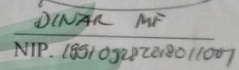 DINAR MF
NIP. 19510928 2018011007